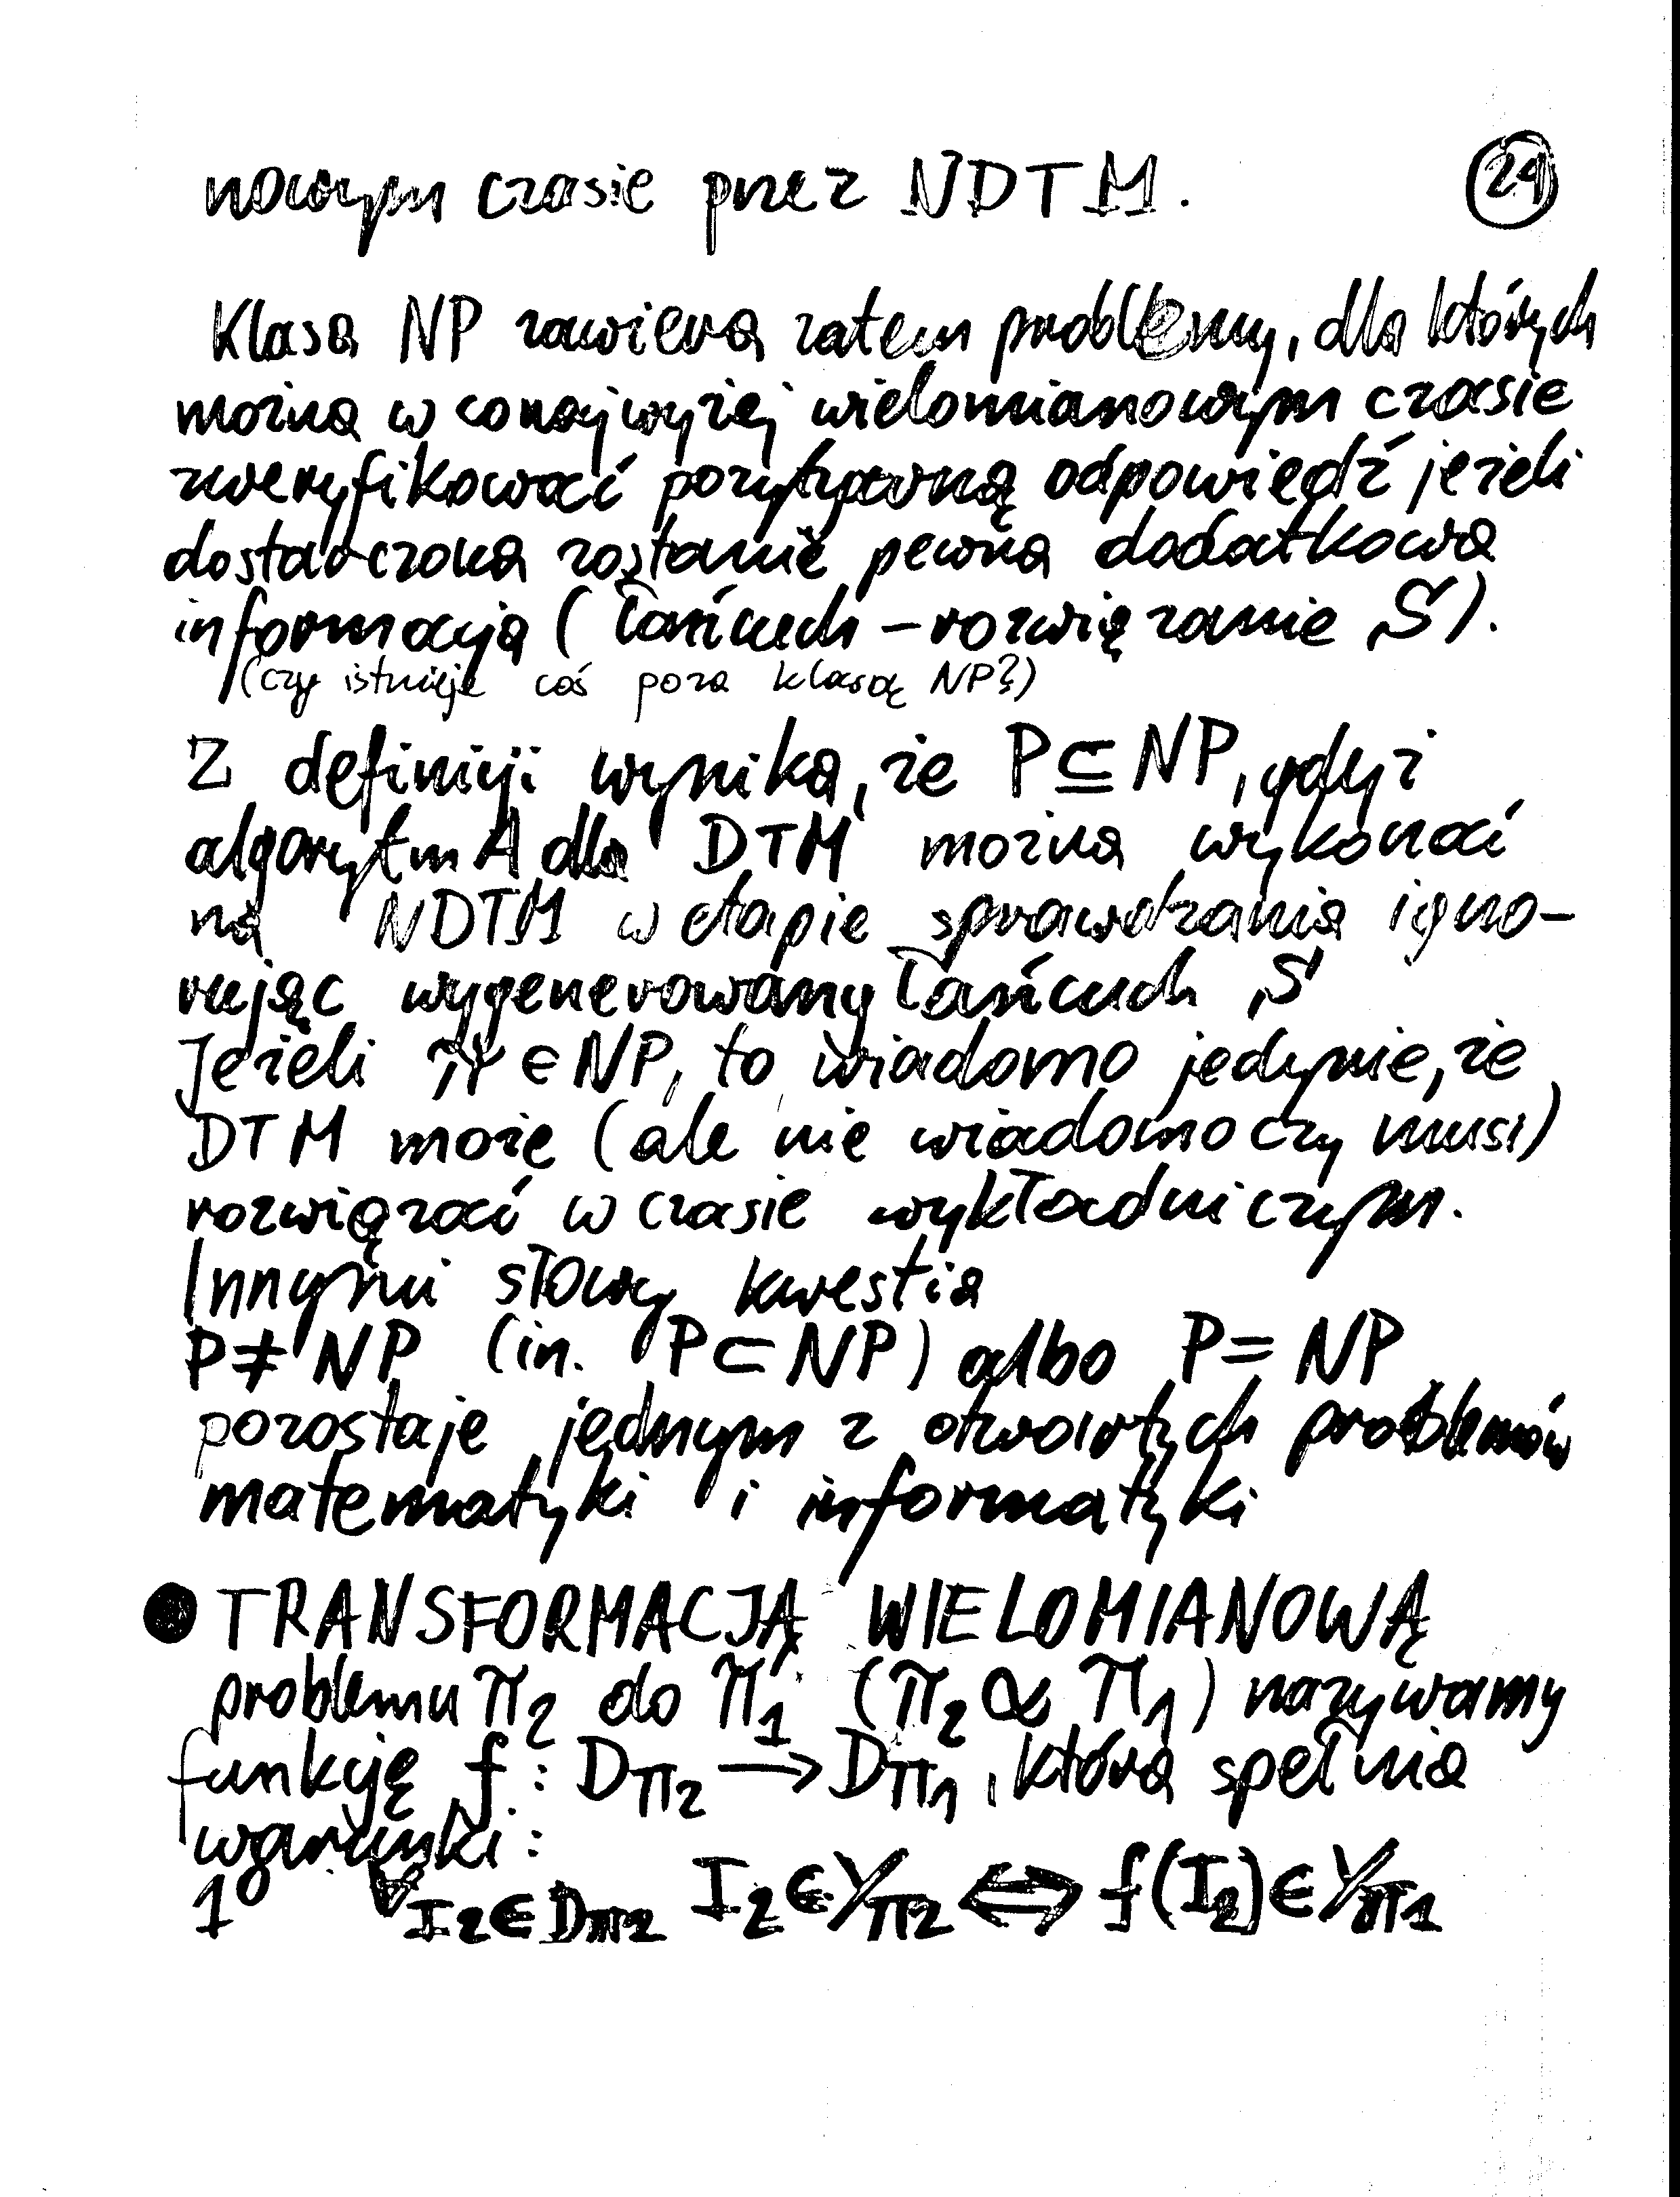 nowym czasie przez NDTM. 24
Klasa NP zawiera zatem problemy, dla których
można w conajwyżej wielomianowym czasie
zweryfikować pozytywną odpowiedź jeżeli
dostarczona zostanie pewna dodatkowa
informacja (łańcuch – rozwiązanie S).
(czy istnieje coś poza klasą NP?)
Z definicji wynika, że P ⊆ NP, gdyż
algorytm A dla DTM można wykonać
na NDTM w etapie sprawdzania igno-
rując wygenerowany łańcuch S
Jeżeli π ∈ NP, to wiadomo jedynie, że
DTM może (ale nie wiadomo czy musi)
rozwiązać w czasie wykładniczym.
Innymi słowy kwestia
P ≠ NP (in. P ⊂ NP) albo P = NP
pozostaje jednym z otwartych problemów
matematyki i informatyki
● TRANSFORMACJĄ WIELOMIANOWĄ
problemu π₂ do π₁ (π₂ ∝ π₁) nazywamy
funkcję f : Dπ₂ → Dπ₁, która spełnia
warunki:
1° ∀ I₂∈Dπ₂ I₂ ∈ Yπ₂ ⇔ f(I₂) ∈ Yπ₁